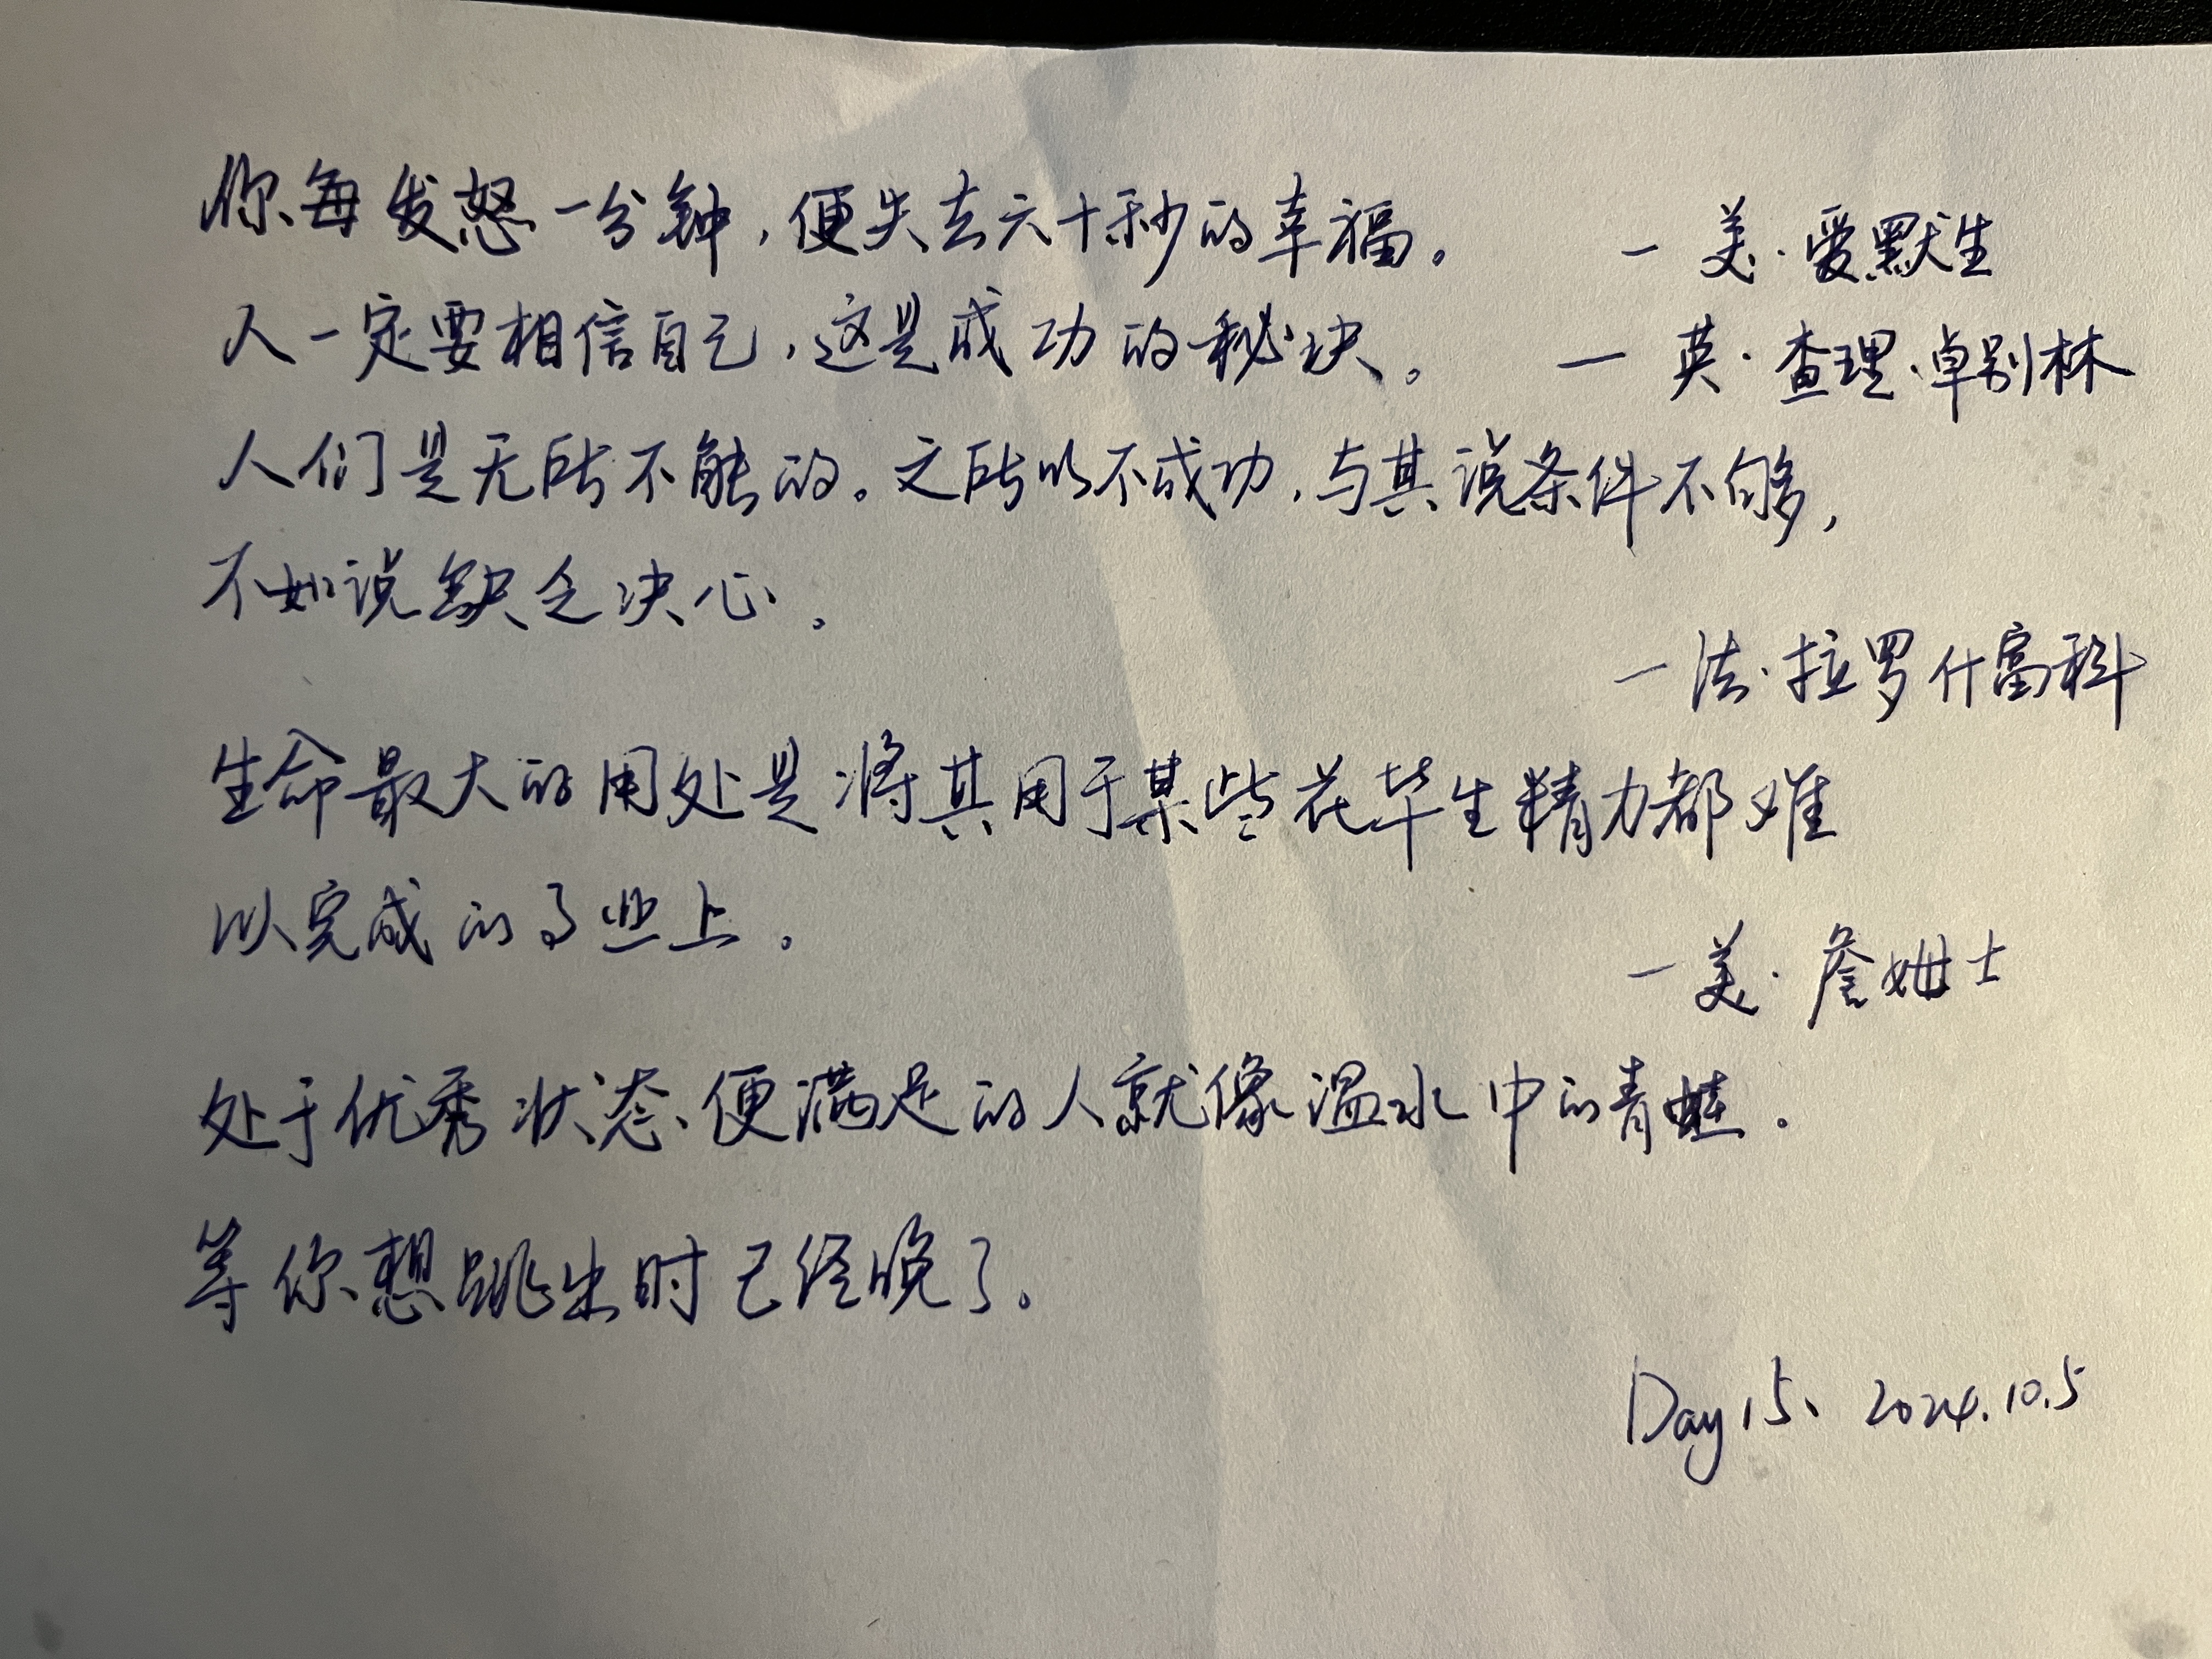 你每发怒一分钟，便失去六十秒的幸福。 一美·爱默生
人一定要相信自己，这是成功的秘诀。 一英·查理·卓别林
人们是无所不能的。之所以不成功，与其说条件不够，
不如说缺乏决心。
一法·拉罗什富科
生命最大的用处是将其用于某些花毕生精力都难
以完成的事业上。
一美·詹姆士
处于优秀状态便满足的人就像温水中的青蛙。
等你想跳出时已经晚了。
Day 15、2024.10.5